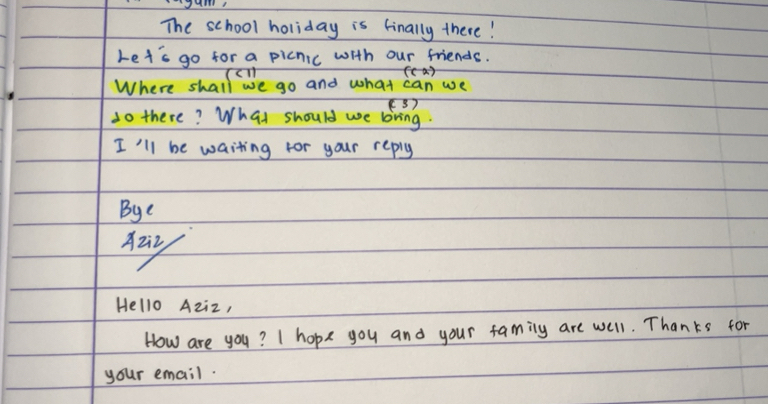 The school holiday is finally there!
Let's go for a picnic with our friends.
(C1) (C2)
Where shall we go and what can we
(C3)
do there? What should we bring.
I'll be waiting for your reply
Bye
Aziz
Hello Aziz,
How are you? I hope you and your family are well. Thanks for
your email.